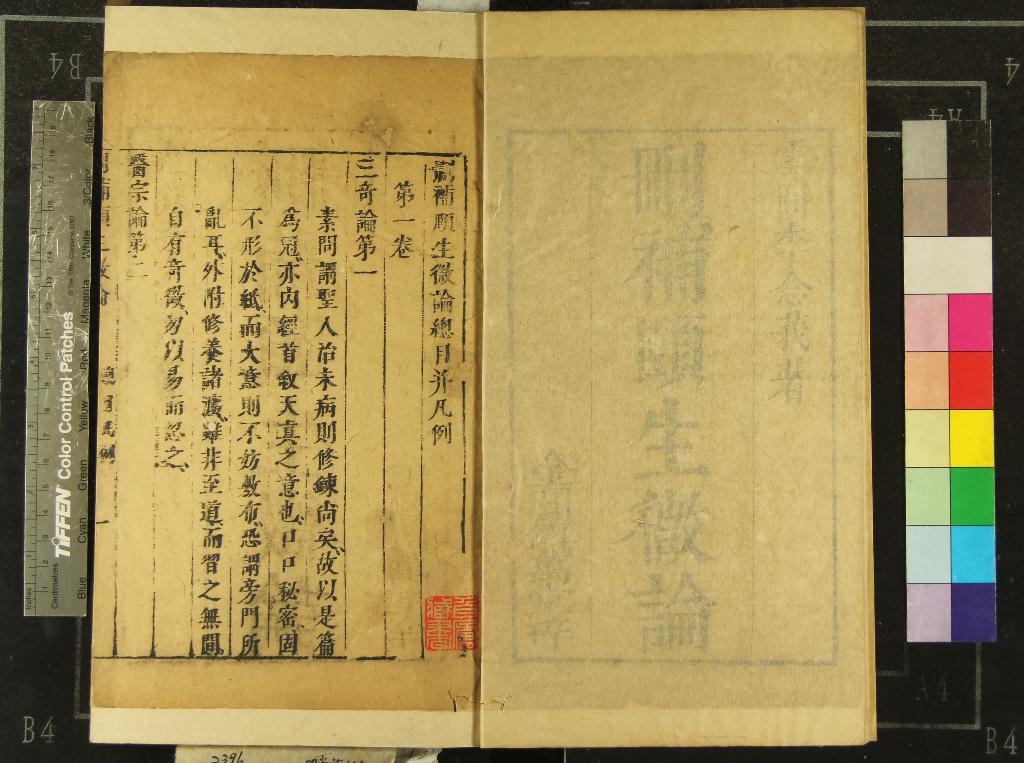 刪補頤生微論總目并凡例
第一卷
三奇論第一
素問謂聖人治未病則修鍊尚矣故以是篇
為冠亦内經首敘天真之意也口口秘密固
不形於紙而大意則不妨敷布恐謂旁門所
亂耳外附修養諸法雖非至道而習之無間
自有奇徵勿以易而忽之
醫宗論第二
刪補頤生微論
李念莪著
刪補頤生微論
B4
A4
B4
B4
A4
4
TIFFEN Color Control Patches
© The Tiffen Company, 2007
Inches
Centimetres
Blue
Cyan
Green
Yellow
Red
Magenta
White
3/Color
Black
2396